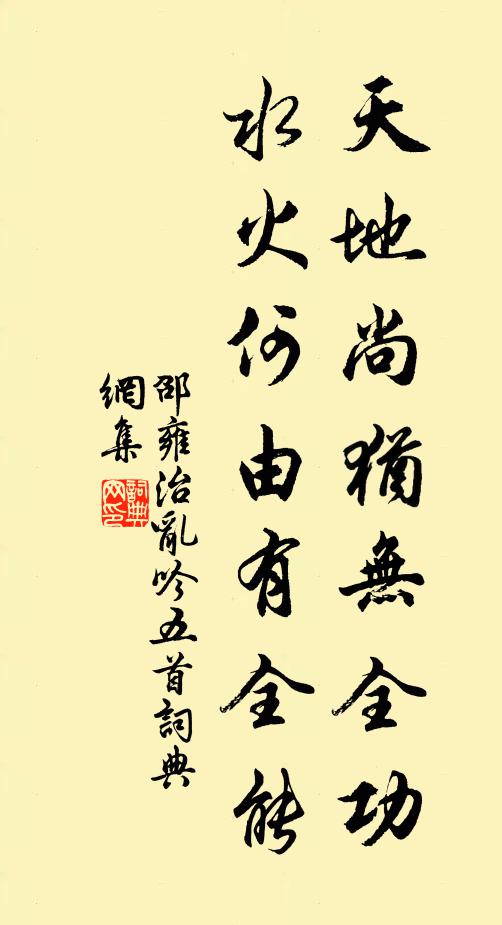 天地尚猶無全功
水火何由有全能
邵雍治亂吟五首詞典
網集
詞典
網印